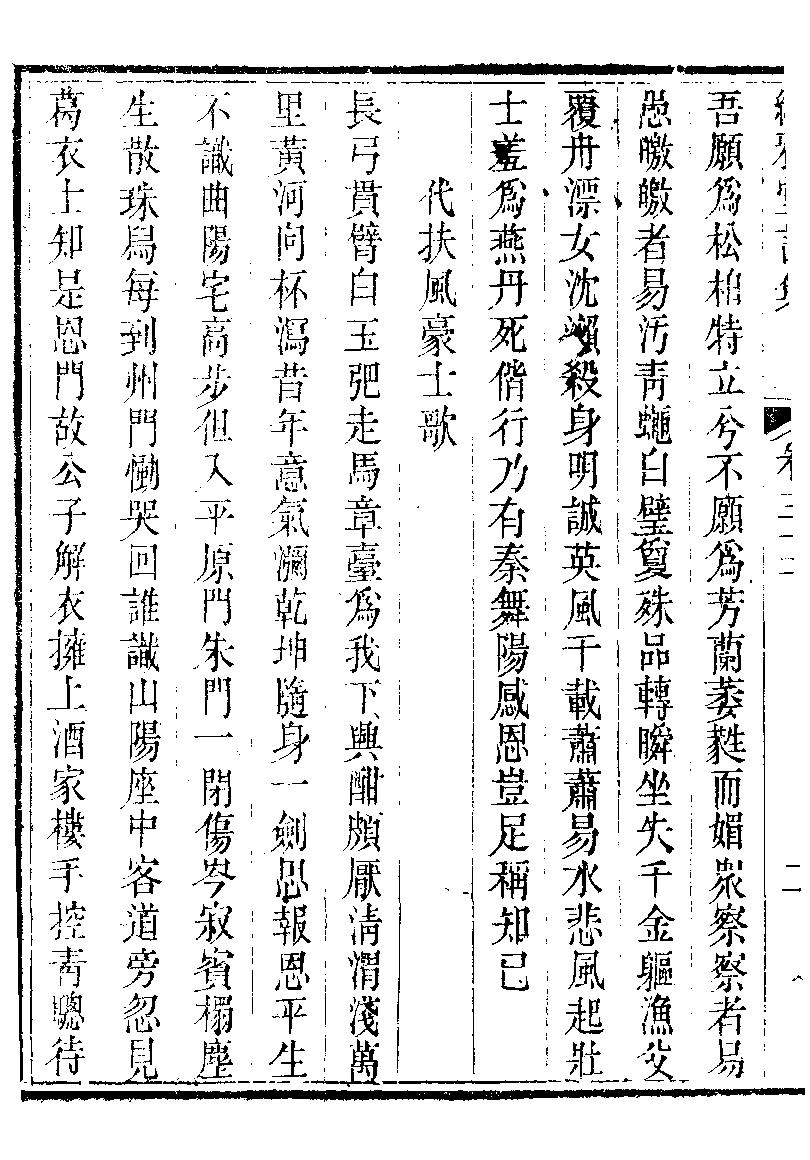 堂詩集 卷 二
吾願爲松栢特立兮不願爲芳蘭萎蕤而媚眾察察者易
愆皦皦者易汚靑蠅白璧夐殊品轉瞬坐失千金軀漁父
覆舟漂女沈瀨殺身明誠英風千載蕭蕭易水悲風起壯
士羞爲燕丹死偕行乃有秦舞陽感恩豈足稱知己
代扶風豪士歌
長弓貫臂白玉弝走馬章臺爲我下興酣頗厭淸渭淺萬
里黃河向杯瀉昔年意氣瀰乾坤隨身一劍思報恩平生
不識曲陽宅高步但入平原門朱門一閉傷岑寂賓榻塵
生散珠舄每到州門慟哭回誰識山陽座中客道旁忽見
葛衣士知是恩門故公子解衣擁上酒家樓手控靑驄待